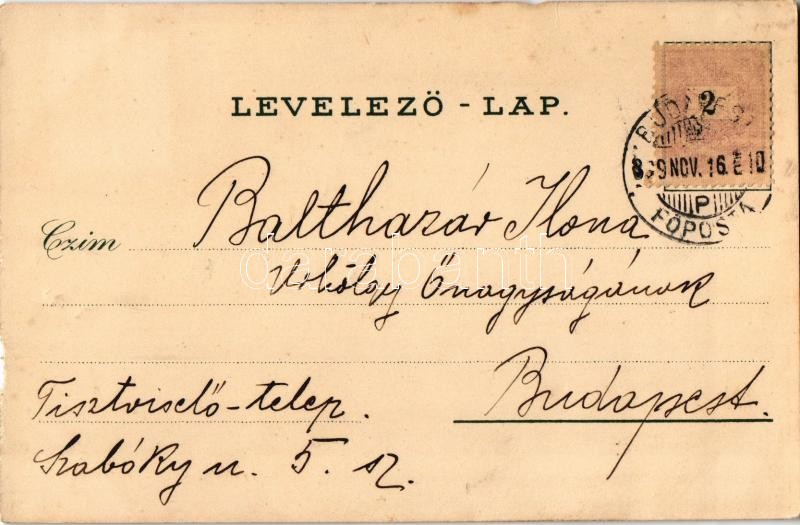 LEVELEZÖ - LAP.
2
BUDAPEST
899 NOV. 16. E 10
P
FŐPOSTA
Czim Balthazár Ilona
darabanth
Urhölgy Őnagyságának
Budapest.
Tisztviselő-telep.
Szabóky u. 5. sz.